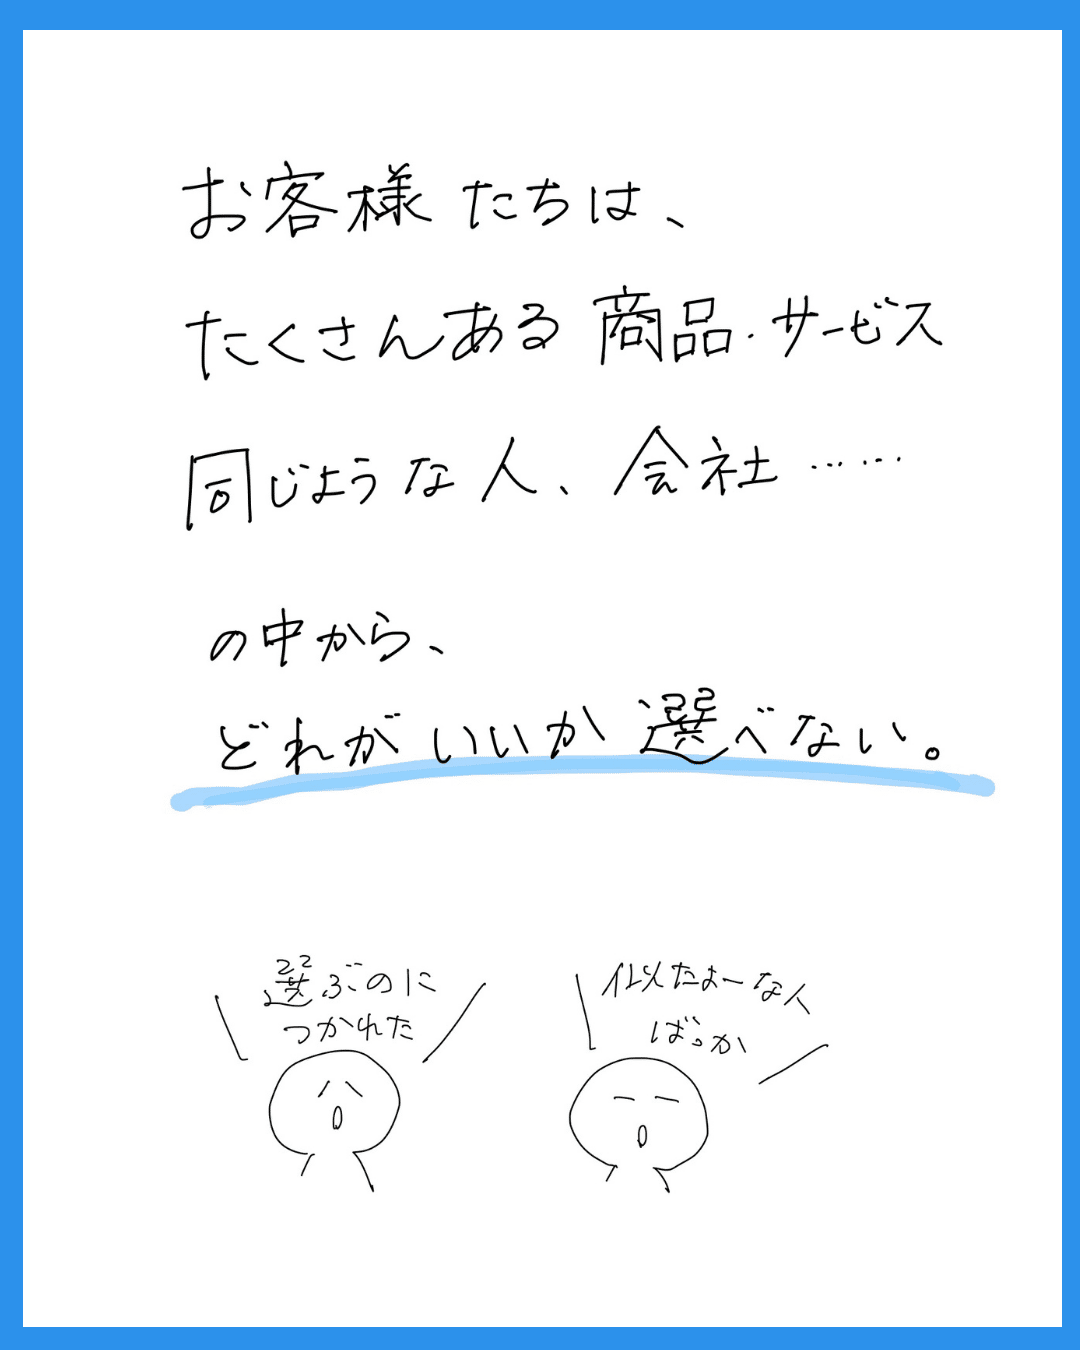 お客様たちは、
たくさんある商品・サービス
同じような人、会社……
の中から、
どれがいいか選べない。
選ぶのに
つかれた
似たよーな人
ばっか